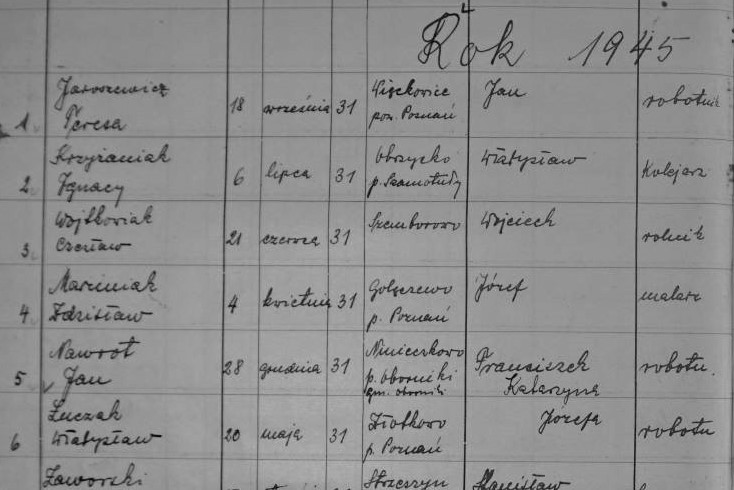 Rok 1945
Jaroszewicz
1 Teresa 18 września 31 Więckowice pow. Poznań Jan robotnik
Krzyżaniak
2 Ignacy 6 lipca 31 Obrzycko p. Szamotuły Władysław Kolejarz
Wojtkowiak
3 Czesław 21 czerwca 31 Szemborowo Wojciech rolnik
Marciniak
4 Zdzisław 4 kwietnia 31 Golęczewo p. Poznań Józef malarz
Nawrot
5 Jan 28 grudnia 31 p. Oborniki gm. Oborniki Franciszek Katarzyna robotn.
Łuczak
6 Władysław 20 maja 31 Złotkowo p. Poznań Józefa robotn
Jaworski Strzeszyn Stanisław